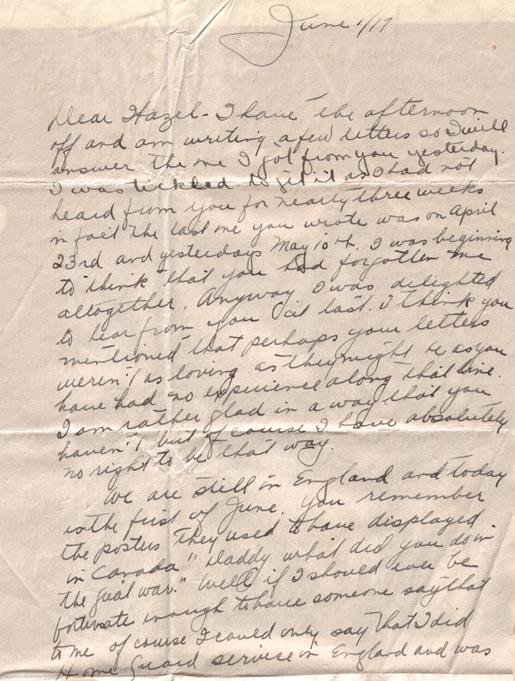 June 1/17
Dear Hazel - I have the afternoon
off and am writing a few letters so I will
answer the one I got from you yesterday.
I was tickled to get it as I had not
heard from you for nearly three weeks
in fact the last one you wrote was on April
23rd and yesterdays May 10th. I was beginning
to think that you had forgotten me
altogether. Anyway I was delighted
to hear from you at last. I think you
mentioned that perhaps your letters
weren't as loving as they might be as you
have had no experience along that line.
I am rather glad in a way that you
haven't but of course I have absolutely
no right to be that way.
We are still in England and today
is the first of June. You remember
the posters they used to have displayed
in Canada "Daddy what did you do in
the great war." Well if I should ever be
fortunate enough to have someone say that
to me of course I could only say that I did
Home Guard service in England and was